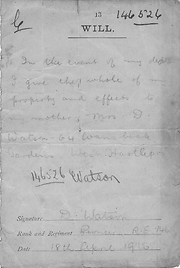 13
146526
WILL.
In the event of my death
I give the whole of my
property and effects to
my mother, Mrs D
Watson 64
Gardens West Hartlepool
146526 Watson
Signature D. Watson
Rank and Regiment Pioneer R.E.
Date 18th April 1916